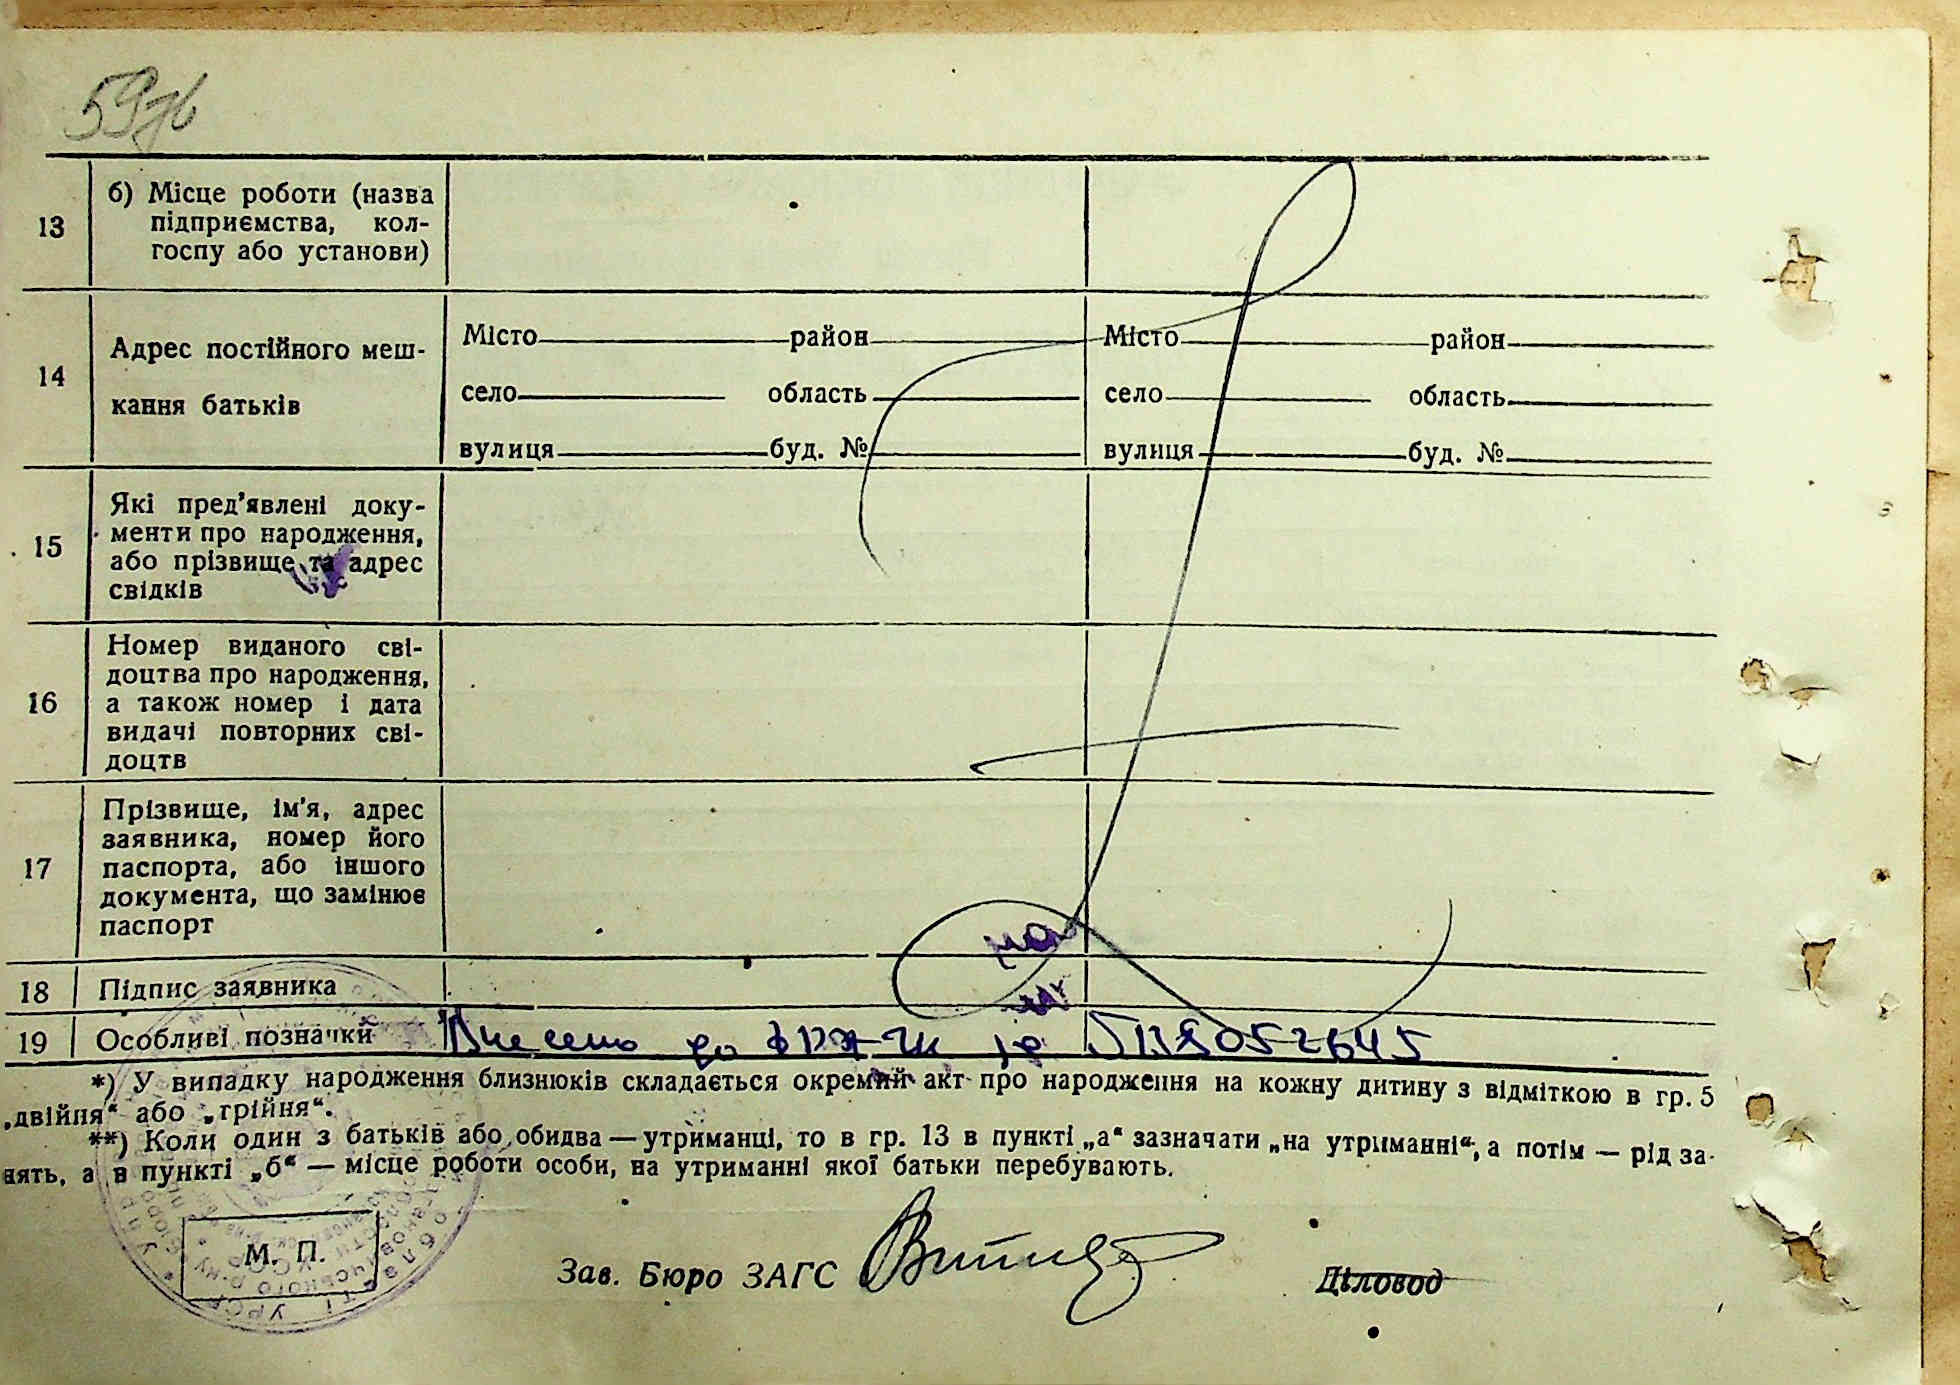 59
13
б) Місце роботи (назва
підприємства, кол-
госпу або установи)
14
Адрес постійного меш-
кання батьків
Місто район
село область
вулиця буд. №
Місто район
село область
вулиця буд. №
15
Які пред'явлені доку-
менти про народження,
або прізвище та адрес
свідків
16
Номер виданого сві-
доцтва про народження,
а також номер і дата
видачі повторних сві-
доцтв
17
Прізвище, ім'я, адрес
заявника, номер його
паспорта, або іншого
документа, що замінює
паспорт
18 Підпис заявника
19 Особливі позначки Внесено до
*) У випадку народження близнюків складається окремий акт про народження на кожну дитину з відміткою в гр. 5
„двійня“ або „трійня“.
**) Коли один з батьків або обидва — утриманці, то в гр. 13 в пункті „а“ зазначати „на утриманні“, а потім — рід за-
нять, а в пункті „б“ — місце роботи особи, на утриманні якої батьки перебувають.
М. П.
Зав. Бюро ЗАГС
Діловод